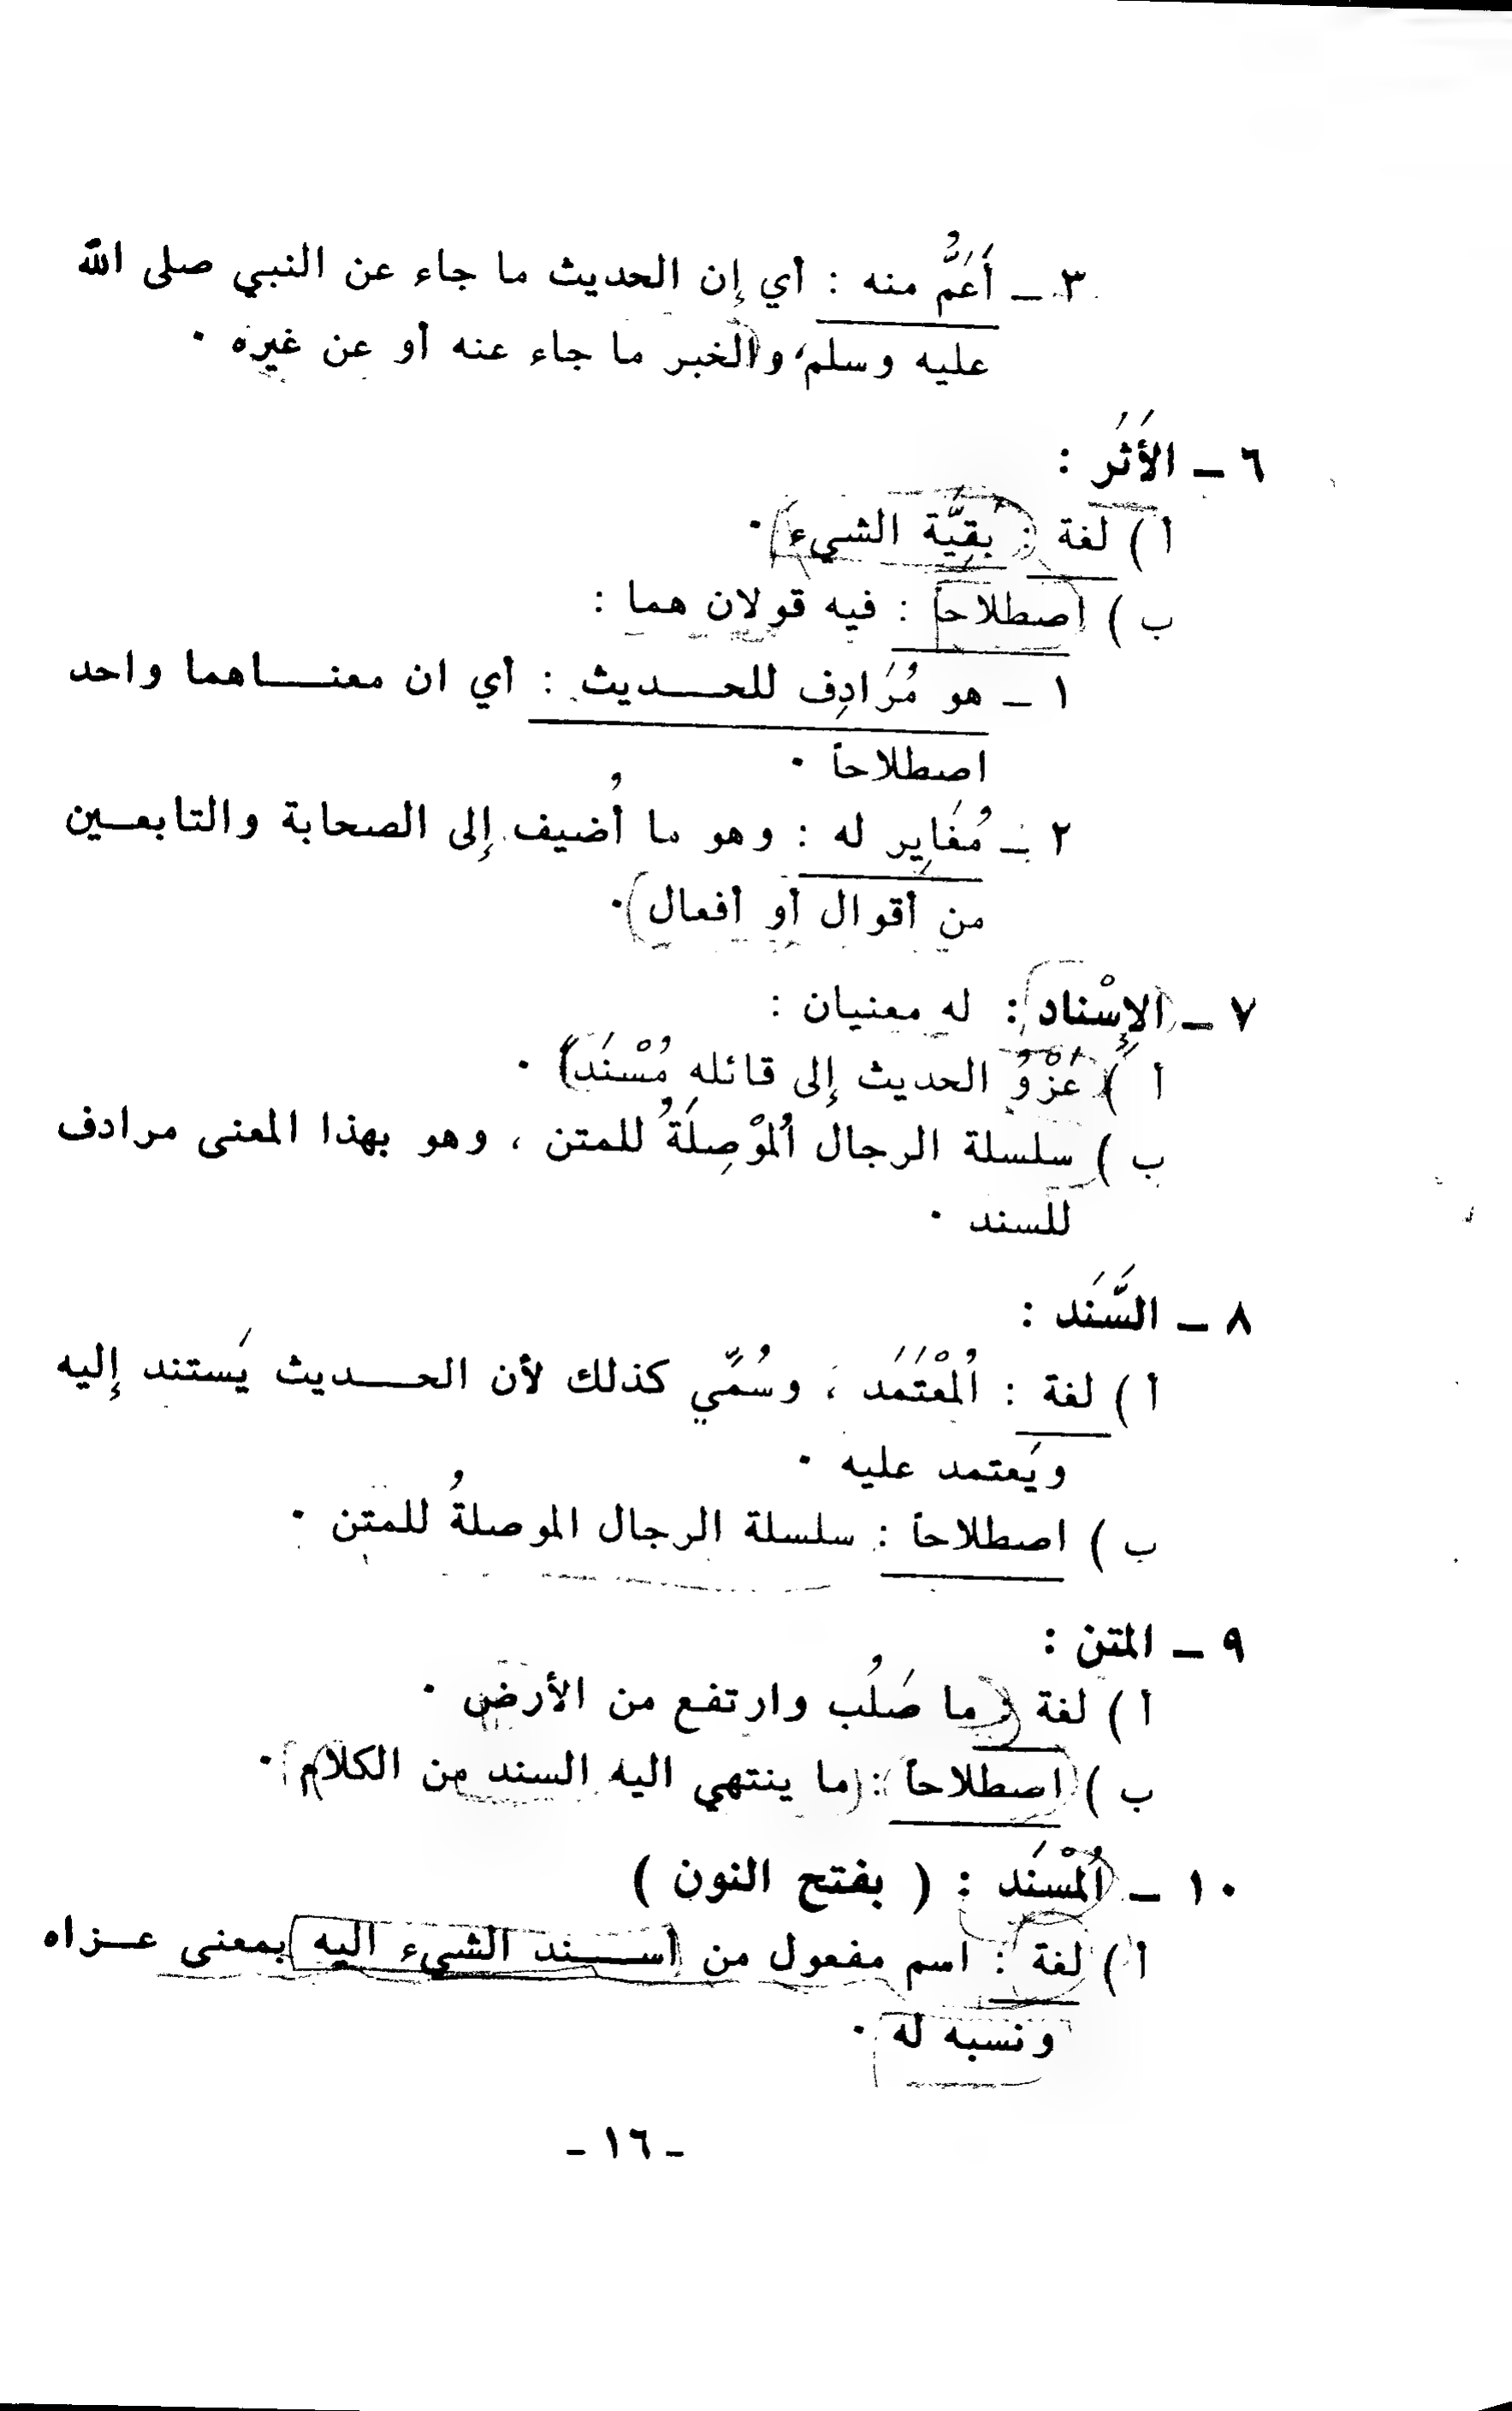 ٣ ـ أَعَمُّ منه : أي إن الحديث ما جاء عن النبي صلى الله
عليه وسلم، والخبر ما جاء عنه أو عن غيره .
٦ ـ الأَثَر :
أ ) لغة : بقيَّة الشيء .
ب ) اصطلاحاً : فيه قولان هما :
١ ـ هو مُرَادِف للحـديث : أي ان معنـاهما واحد
اصطلاحاً .
٢ ـ مُغَايِر له : وهو ما أُضيف إلى الصحابة والتابعـين
من أقوال أو أفعال .
٧ ـ الإِسْناد : له معنيان :
أ ) عَزْوُ الحديث إلى قائله مُسْنَداً .
ب ) سلسلة الرجال اَلمُوْصِلَةُ للمتن ، وهو بهذا المعنى مرادف
للسند .
٨ ـ السَّنَد :
أ ) لغة : اَلمُعْتَمَد ، وسُمِّي كذلك لأن الحـديث يَستند إليه
ويَعتمد عليه .
ب ) اصطلاحاً : سلسلة الرجال الموصلةُ للمتن .
٩ ـ المتن :
أ ) لغة : ما صَلُب وارتفع من الأرض .
ب ) اصطلاحاً : ما ينتهي اليه السند من الكلام .
١٠ ـ اَلمُسْنَد : ( بفتح النون )
أ ) لغة : اسم مفعول من أسـند الشيء اليه بمعنى عـزاه
ونسبه له .
ـ ١٦ ـ